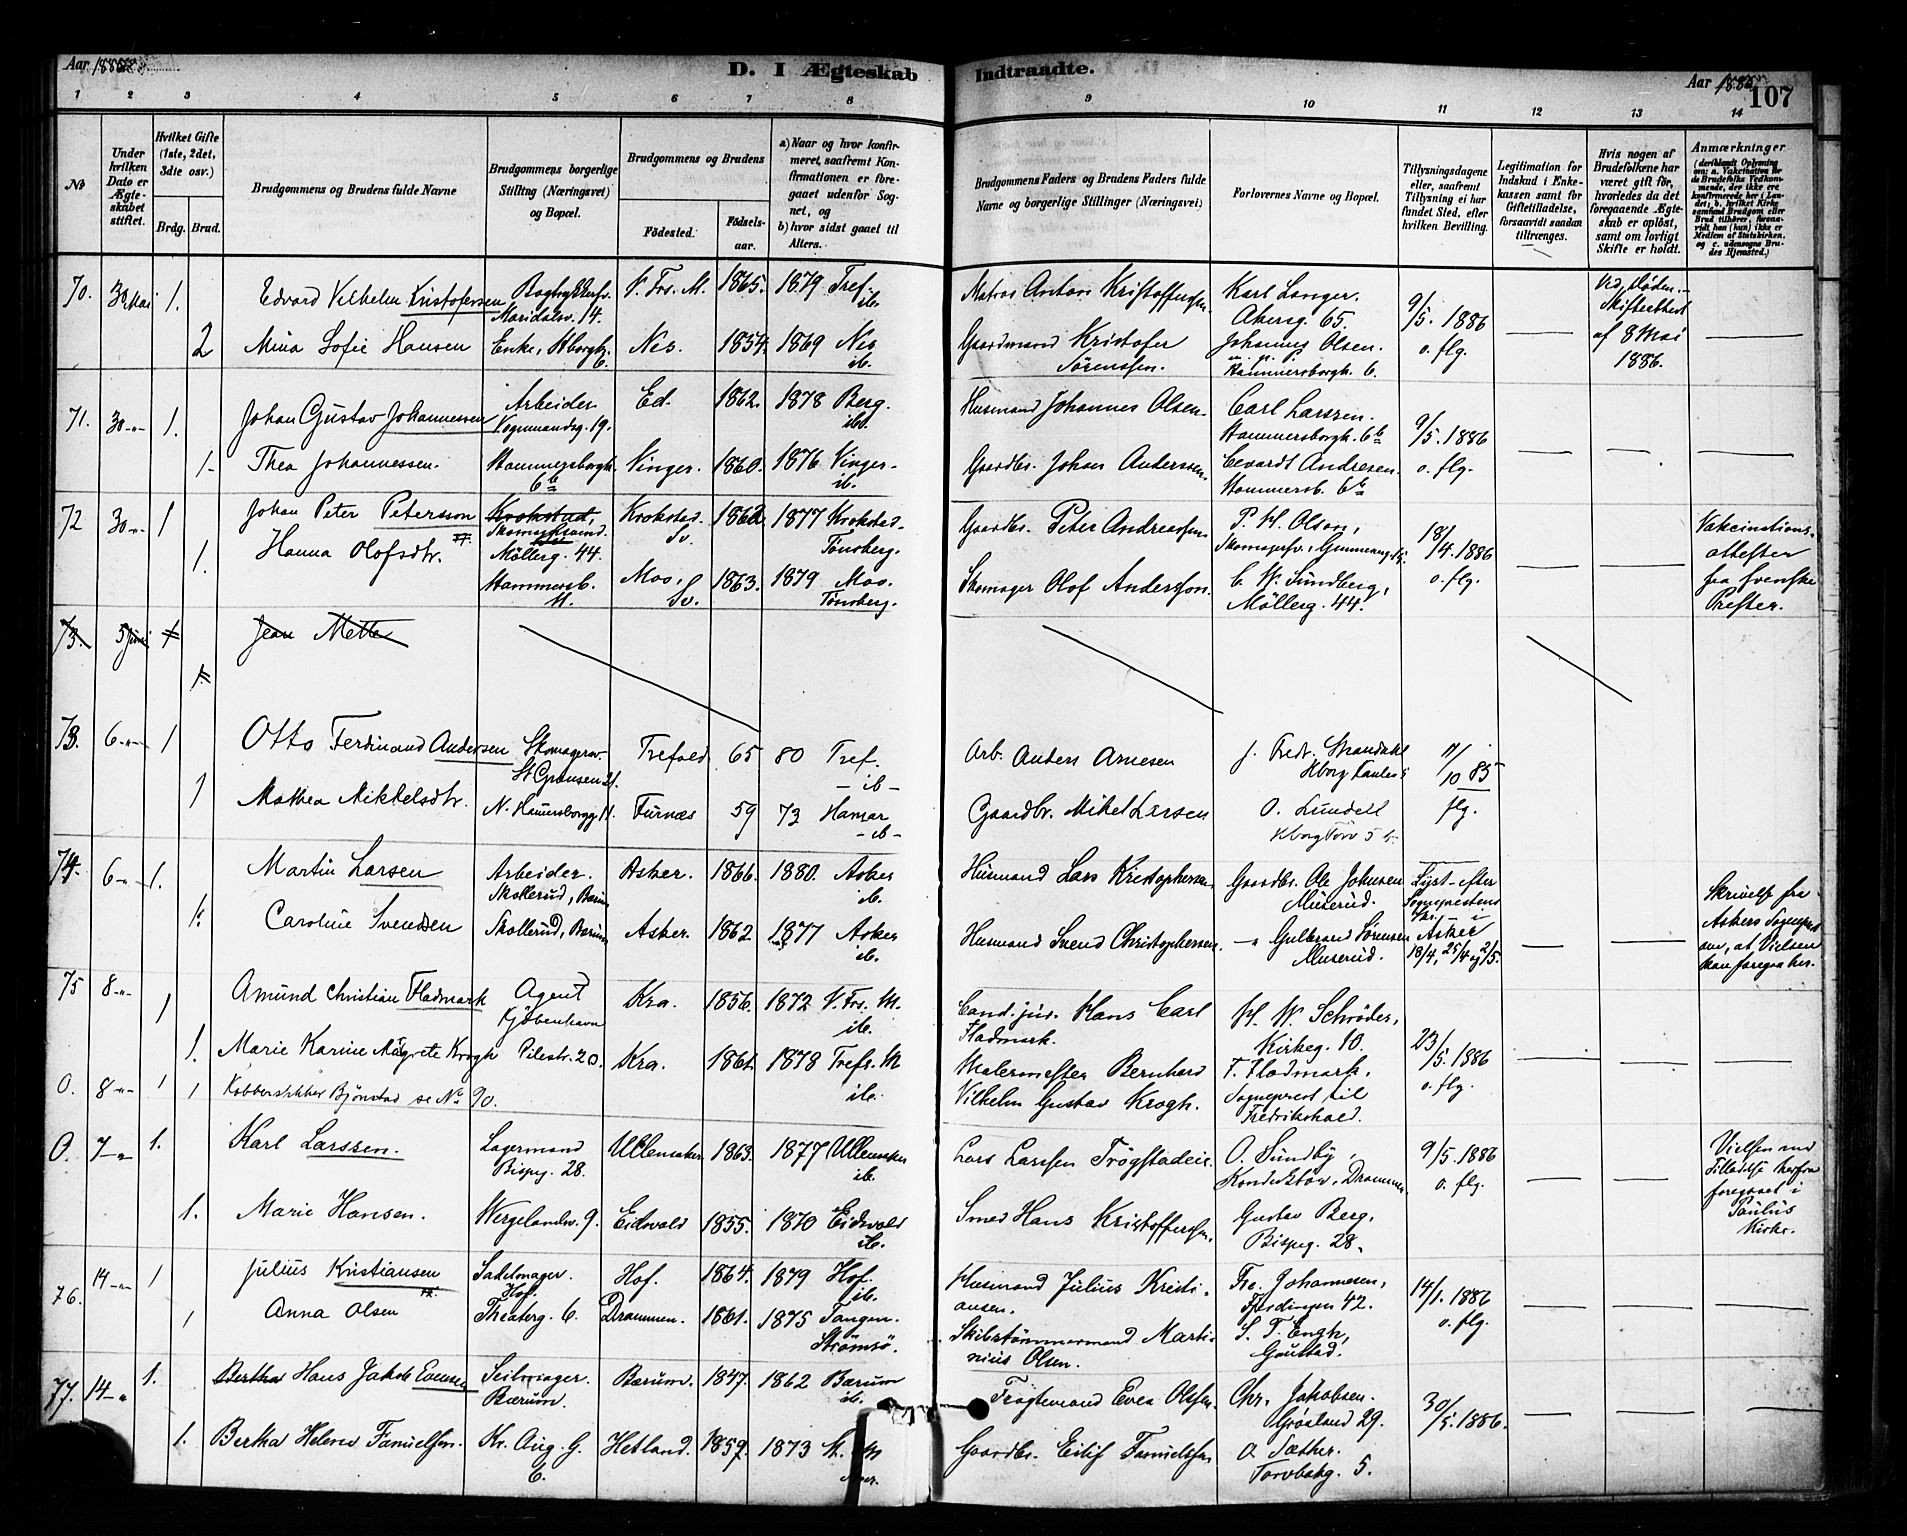 Aar 1886
D. I Ægteskab Indtraadte.
Aar 1886
107
1 2 3 4 5 6 7 8 9 10 11 12 13 14
No
Under hvilken Dato er Ægteskabet stiftet.
Hvilket Gifte (1ste, 2det, 3die osv.)
Brdg. Brud.
Brudgommens og Brudens fulde Navne
Brudgommens borgerlige Stilling (Næringsvei) og Bopæl.
Brudgommens og Brudens
Fødested.
Fødselsaar.
a) Naar og hvor konfirmeret, saafremt Konfirmationen er foregaaet udenfor Sognet, og
b) hvor sidst gaaet til Alters.
Brudgommens Faders og Brudens Faders fulde Navne og borgerlige Stillinger (Næringsvei)
Forlovernes Navne og Bopæl.
Tillysningsdagene eller, saafremt Tillysning ei har fundet Sted, efter hvilken Bevilling.
Legitimation for Indskud i Enkekassen samt for Giftetilladelse, forsaavidt saadan tiltrænges.
Hvis nogen af Brudefolkene har været gift før, hvorledes da det foregaaende Ægteskab er opløst, samt om lovligt Skifte er holdt.
Anmærkninger
(deriblandt Oplysning om: a. Vakcination for de Brudefolks Vedkommende, der ikke ere konfirmerede her i Landet; b. hvilket Kirkesamfund Brudgom eller Brud tilhører, forsaavidt han (hun) ikke er Medlem af Statskirken, og c. udensogns Brudes Hjemsted.)
70. 30 Mai 1. Edvard Vilhelm Kristofersen V. Frs. M. 1865. 1879 Tref. ib.
Maridalsv. 14.
Matros Anton Kristoffersen. Karl Langer. Akersg. 65. 9/5. 1886 o. flg.
Ved Døden. Skifteattest af 8 Mai 1886.
2 Mina Sofie Hansen Enke, Hborgtz. 6. Nes. 1854. 1869 Nes ib.
Gaardmand Kristofer Sørenssen. Johannes Olsen. Hammersborgk. 6.
71. 30-"- 1. Johan Gustav Johannessen Arbeider Vognmandsg. 19. Ed. 1862. 1878 Berg. ib.
Husmand Johannes Olsen. Carl Larssen. Hammersborgk. 6b 9/5. 1886 o. flg.
1- Thea Johannessen. Hammersborgk. 6b Vinger. 1860. 1876 Vinger. ib.
Gaardbr. Johan Anderssen. Edvardt Andresen. Hammersb. 6b
72 30-"- 1 Johan Peter Petersson Krokstad, Skomagersvend. Möllerg. 44. Krokstad. Sv. 1862 1877 Krokstad. Tønsberg.
Gaardbr. Peter Andreassen P. H. Olson, 18/4. 1886 o. flg.
Vakcinationsattester fra svenske Prester.
1. Hanna Olofsdtr. Hammersb. 11. Mos, Sv. 1863. 1879 Mos. Tønsberg.
Skomager Olof Anderson. C. W. Sundberg, Möllerg. 44.
73. 5 Juni 1 Jean Mette
1.
73. 6-"- 1 Otto Ferdinand Andersen Skomagersv. St Grænsen 21. Trefold 65 80 Tref. - ib -
Arb. Anders Arnesen J. Fredr. Strandahl 11/10 85 flg.
1 Mathea Mikkelsdtr. N. Hamersborgg 11. Furnæs 59 73 Hamar - ib -
Gaardbr. Mikel Larsen O. Lundell Hborg Torv 5
74. 6-"- 1. Martin Larsen Arbeider. Skollerud, Bærum Asker. 1866. 1880. Asker ib.
Husmand Lars Kristophersen Gaardbr. Ole Johnsen Muserud. Lyst efter Sognepræstens Skr. i Asker 18/4, 25/4 og 2/5.
Skrivelse fra Askers Sognepræst om, at Vielsen kan foregaa her.
1. Caroline Svendsen Skollerud, Bærum Asker. 1862 1877 Asker ib.
Husmand Svend Christophersen. -"- Gulbrand Sørensen Muserud.
75 8-"- 1 Amund Christian Fladmark Agent Kjøbenhavn Kra. 1856. 1872 V. Frs. M. ib.
Cand. jur. Hans Carl Fladmark. H. W. Schrøder, Kirkeg. 10. 23/5. 1886 o. flg.
1. Marie Karine Magrete Krogh Pilestr. 20. Kra. 1861. 1878 Trefs. M ib.
Malermester Bernhard Vilhelm Gustav Krogh. F. Fladmark, Sogneprest til Fredrikshald.
0. 8-"- 1 1 Kobberstikker Bjønstad se No 90.
0. 7-"- 1. Karl Larssen. Lagermand Bispeg. 28. Ullensaker 1863. 1877 Ullensaker ib.
Lars Larssen Trögstadeie. O. Sundby, Konduktør, Drammen. 9/5. 1886 o. flg.
Vielsen med Tilladelse herfra foregaaet i Paulus Kirke.
1. Marie Hansen. Wergelandsv. 9. Eidsvold 1855. 1870 Eidsvold ib.
Smed Hans Kristoffersen. Gustav Berg, Bispeg. 28.
76. 14-"- 1 Julius Kristiansen Sadelmager. Hof. Hof. 1864. 1879 Hof. ib.
Husmand Julius Kristiansen. Fre. Johannesen, Fjerdingen 42. 14/1. 1886 o. flg.
1 Anna Olsen Theaterg. 6. Drammen. 1861. 1875 Tangen. Strömsö.
Skibstømmermand Martinius Olsen. S. T. Engh, Gaustad.
77. 14-"- 1. Bertha Hans Jakob Evensen Seilmager. Bærum. Bærum. 1847. 1862 Bærum ib.
Fragtemand Even Olsen. Chr. Jakobsen. Grønland 29. 30/5. 1886.
1. Bertha Helene Kr. Aug. G. 6. Hetland. 1859. 1873
Gaardbr. Eilif O. Sæther. Torvbakg. 5.